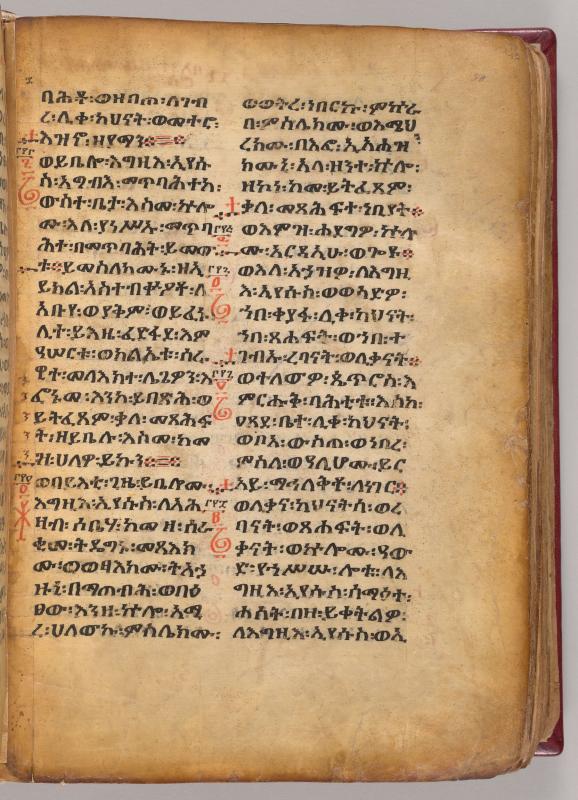 ባሕቶ፡ወዘባጦ፡ለገብ
ረ፡ሊቀ፡ካህናት፡ወመተሮ፡
እዝኖ፡ዘየማን።
ወይቤሎ፡እግዚእ፡ኢየሱ
ስ፡አግብእ፡ማጥባሕተከ፡
ውስተ፡ቤታ፡እስመ፡ኵሎ
ሙ፡እለ፡ያነሥኡ፡ማጥባ
ሕተ፡በማጥባሕት፡ይመው
ቱ።ይመስለከሙኑ፡ዘኢ
ይክል፡አስተብቍዖቶ፡ለ
አቡየ፡ወያቅም፡ወይፈኑ
ሊተ፡ይእዜ፡ፈድፋደ፡እም
ዓሠርቱ፡ወክልኤቱ፡ሰራ
ዊተ፡መላእክት፡ሌጌዎን፡እ
ፎኑመ፡እንከ፡ይበጽሕ፡ወ
ይትፈጸም፡ቃለ፡መጻሕፍ
ት፡ዘይቤሉ፡እስመ፡ከመ
ዝ፡ሀለዎ፡ይኩን።
ወበይእቲ፡ጊዜ፡ይቤሎሙ፡
እግዚእ፡ኢየሱስ፡ለአሕ
ዛብ፡ሰቤሃ፡ከመ፡ዘ፡ሰራ
ቂመ፡ትዴግኑ፡መጻእክ
ሙ፡ወወፃእክሙ፡ትእኀ
ዙኒ፡በማጠብሕ፡ወበዕ
ፀው፡እንዘ፡ኵሎ፡አሚ
ረ፡ሀለውኩ፡ምስሌክሙ፡
ወወትረ፡ነበርኩ፡ምኵራ
በ፡ምስሌክሙ፡ወእሜህ
ረክሙ፡በእፎ፡ኢአሐዝ
ክሙኒ፡አላ፡ዝንቱ፡ኵሎ፡
ዘኮነ፡ከመ፡ይትፈጸም፡
ቃለ፡መጻሕፍተ፡ነቢያት።
ወእምዝ፡ሐደግዎ፡ኵሉ
ሙ፡አርዳኢሁ፡ወጐዩ።
ወእለ፡አኀዝዎ፡ለእግዚ
እ፡ኢየሱስ፡ወወሰድዎ፡
ኀበ፡ቀያፋ፡ሊቀ፡ካህናት፡
ኀበ፡ጸሐፍት፡ወኀበ፡ተ
ጋብኡ፡ረባናት፡ወሊቃናት።
ወተለዎ፡ጴጥሮስ፡እ
ምርሑቅ፡ባሕቲቱ፡እስከ፡
ዐጸደ፡ቤተ፡ሊቀ፡ካህናት፡
ወቦአ፡ውስጠ፡ወነበረ፡
ምስለ፡ወዓሊሆሙ፡ይር
አይ፡ማኅለቅቶ፡ለነገር።
ወሊቃነ፡ካህናትሰ፡ወረ
ባናት፡ወጸሐፍት፡ወሊ
ቃናት፡ወኵሎሙ፡ዓው
ድ፡የኀሥሡ፡ሎቱ፡ለእ
ግዚእ፡ኢየሱስ፡ሰማዕተ፡
ሐሰት፡በዘ፡ይቀትልዎ፡
ለእግዚእ፡ኢየሱስ፡ወኢ